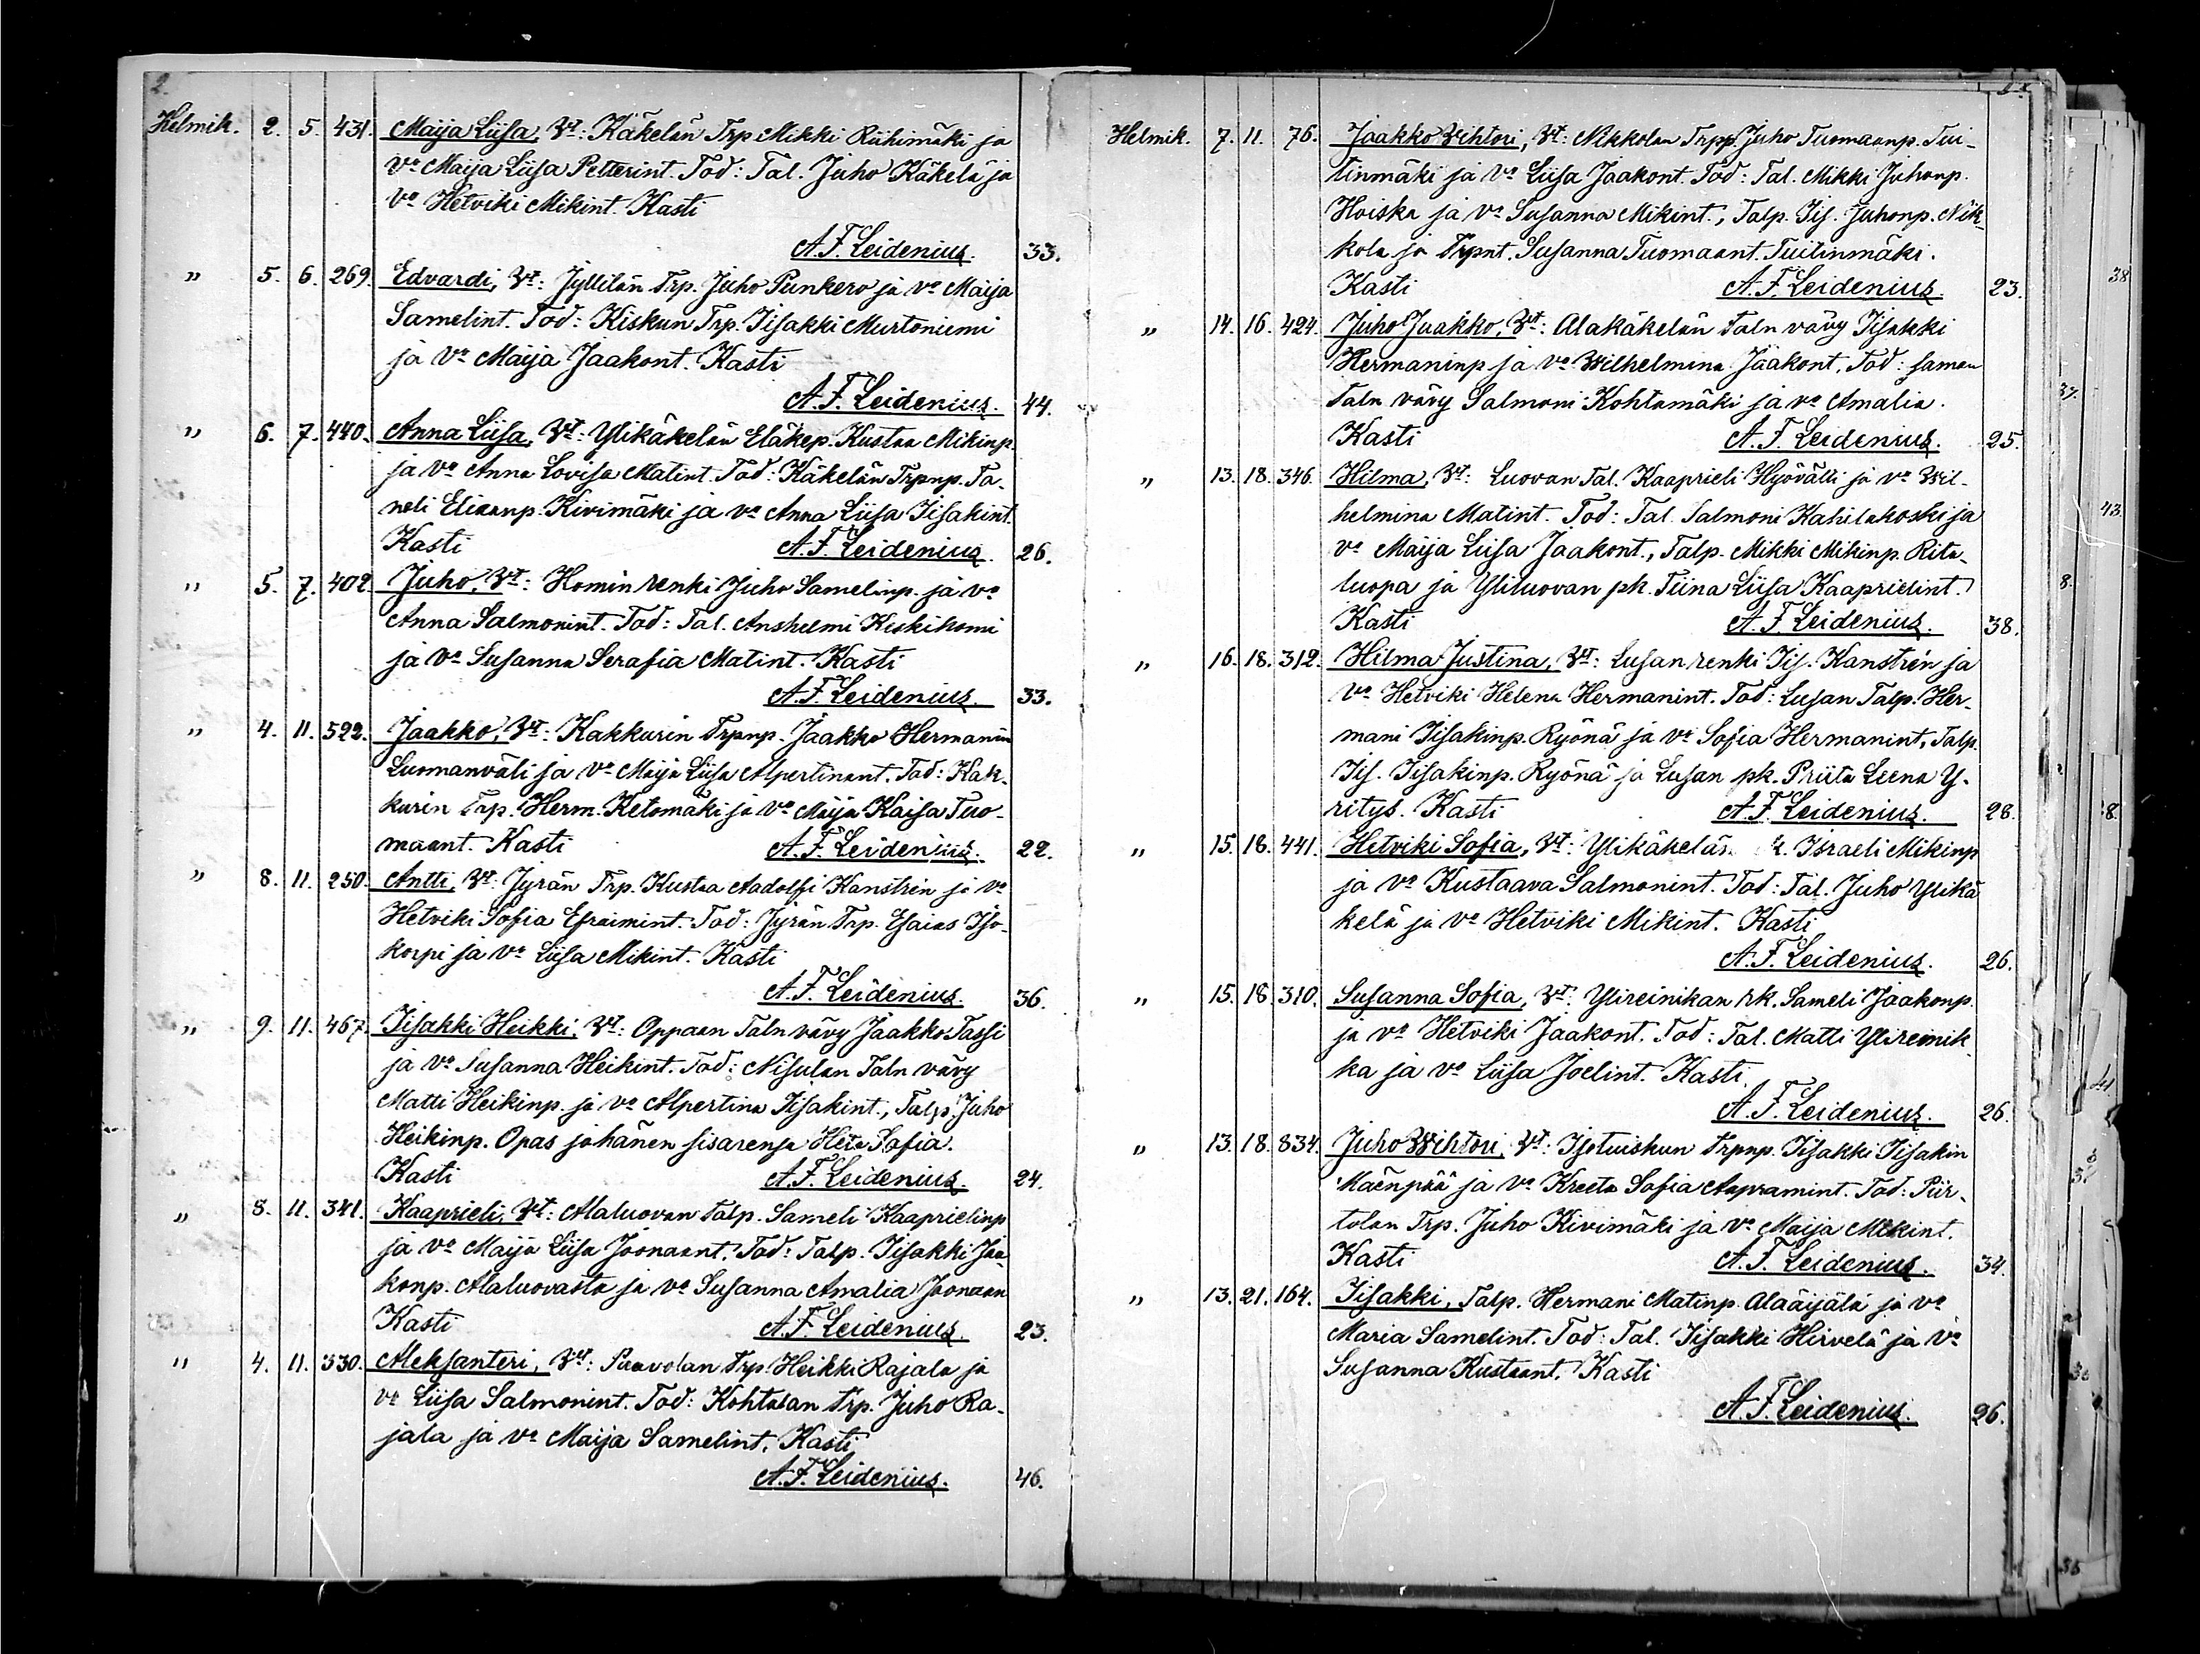 2.
Helmik. 2. 5. 431. Maija Liisa, Vt: Käkelän Trp Mikki Riihimäki ja
vo Maija Liisa Petterint. Tod: Tal. Juho Käkelä ja
vo Hetviki Mikint. Kasti
A. F. Leidenius. 33.
" 5. 6. 269. Edvardi, Vt: Jyllilän Trp. Juho Punkero ja vo Maija
Samelint. Tod: Kiskun Trp. Iisakki Murtoniemi
ja vo Maija Jaakont. Kasti
A. F. Leidenius. 44.
" 6. 7. 440. Anna Liisa, Vt: Ylikäkelän Eläkep. Kustaa Mikinp.
ja vo Anna Lovisa Matint. Tod: Käkelän Trpnp. Ta-
neli Eliaanp. Kivimäki ja vo Anna Liisa Iisakint.
Kasti A. F. Leidenius. 26.
" 5. 7. 402. Juho, Vt: Homin renki Juho Samelinp. ja vo
Anna Salmonint. Tod: Tal. Anshelmi Keskihomi
ja vo Susanna Serafia Matint. Kasti
A. F. Leidenius. 33.
" 4. 11. 522. Jaakko, Vt: Kakkurin Trpnp. Jaakko Hermanin
Luomanväli ja vo Maija Liisa Alpertinant. Tod: Kak-
kurin Trp. Herm. Ketomäki ja vo Maija Kaisa Tuo-
maant. Kasti A. F. Leidenius. 22.
" 8. 11. 250. Antti, Vt: Jyrän Trp. Kustaa Aadolfi Kanstrén ja vo
Hetviki Sofia Efraimint. Tod: Jyrän Trp. Esaias Iso-
korpi ja vo Liisa Mikint. Kasti
A. F. Leidenius. 36.
" 9. 11. 467. Iisakki Heikki, Vt: Oppaan Taln vävy Jaakko Tassi
ja vo Susanna Heikint. Tod: Nisulan Taln vävy
Matti Heikinp. ja vo Alpertina Iisakint., Talp. Juho
Heikinp. Opas ja hänen sisarensa Heta Sofia.
Kasti A. F. Leidenius. 24.
" 8. 11. 341. Kaaprieli, Vt: Alaluovan Talp. Sameli Kaaprielinp
ja vo Maija Liisa Joonaant. Tod: Talp. Iisakki Jaa-
konp. Alaluovasta ja vo Susanna Amalia Joonaan
Kasti A. F. Leidenius. 23.
" 4. 11. 530. Aleksanteri, Vt: Paavolan Trp. Heikki Rajala ja
vo Liisa Salmonint. Tod: Kohtalan Trp. Juho Ra-
jala ja vo Maija Samelint. Kasti
A. F. Leidenius. 46.
Helmik. 7. 11. 76. Jaakko Vihtori, Vt: Nikkolan Trpp. Juho Tuomaanp. Tui-
tinmäki ja vo Liisa Jaakont. Tod: Tal. Mikki Juhonp.
Hoiska ja vo Susanna Mikint., Talp. Iis. Juhonp. Nik-
kola ja Trpnt. Susanna Tuomaant. Tuitinmäki.
Kasti A. F. Leidenius. 23.
" 14. 16. 424. Juho Jaakko, Vt: Alakäkelän Taln vävy Iisakki
Hermaninp ja vo Wilhelmina Jaakont. Tod: saman
Taln vävy Salmoni Kohtamäki ja vo Amalia.
Kasti A. F. Leidenius. 25.
" 13. 18. 346. Hilma, Vt: Luovan Tal. Kaaprieli Hyövälti ja vo Wil-
helmina Matint. Tod: Tal. Salmoni Kahilakoski ja
vo Maija Liisa Jaakont., Talp. Mikki Mikinp. Rita-
luopa ja Yliluovan ph. Tiina Liisa Kaaprielint.
Kasti A. F. Leidenius. 38.
" 16. 18. 312. Hilma Justina, Vt: Lusan renki Iis. Kanstrén ja
vo Hetviki Helena Hermanint. Tod: Lusan Talp. Her-
mani Iisakinp. Ryönä ja vo Sofia Hermanint, Talp.
Iis. Iisakinp. Ryönä ja Lusan pk. Priita Leena Y-
ritys. Kasti A. F. Leidenius. 28.
" 15. 18. 441. Hetviki Sofia, Vt: Ylikäkelän Israeli Mikinp
ja vo Kustaava Salmonint. Tod: Tal. Juho Ylikä
kelä ja vo Hetviki Mikint. Kasti
A. F. Leidenius. 26.
" 15. 18. 310. Susanna Sofia, Vt: Ylireinikan rk. Sameli Jaakonp.
ja vo Hetviki Jaakont. Tod: Tal. Matti Ylireinik
ka ja vo Liisa Joelint. Kasti.
A. F. Leidenius. 26.
" 13. 18. 834. Juho Wihtori, Vt: Isotuiskun Trpnp. Iisakki Iisakin
Mäenpää ja vo Kreeta Sofia Aapramint. Tod: Piir-
tolan Trp. Juho Kivimäki ja vo Maija Mikint.
Kasti A. F. Leidenius. 34.
" 13. 21. 164. Iisakki, Talp. Hermani Matinp. Alaäijälä ja vo
Maria Samelint. Tod: Tal. Iisakki Hirvelä ja vo
Susanna Kustaant. Kasti
A. F. Leidenius. 26.